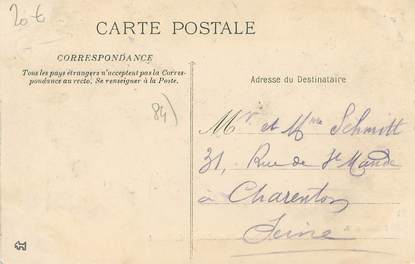 20-6
CARTE POSTALE
CORRESPONDANCE
Tous les pays étrangers n'acceptent pas la Corres-
pondance au recto, Se renseigner à la Poste.
Adresse du Destinataire
84)
Mr et Mme Schmitt
31, Rue de St Mandé
à Charenton
Seine